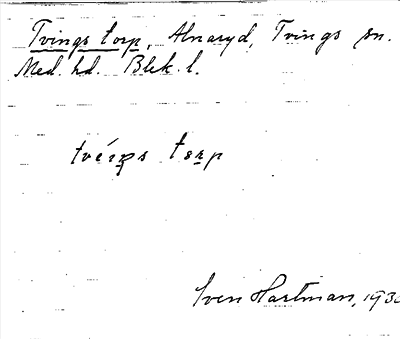 Tvings torp, Alnaryd, Tvings sn.
Med. hd. Blek. l.
tvéiŋs tɵrp
Sven Hartman, 193